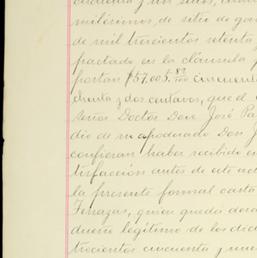 cincuenta y un sitios, cua
milésimos, de sitio de gan
de mil trescientos setenta y
pactado en la cláusula p
portan $57.005 82/100 cincuent
chenta y dos centavos, que el
serios Doctor Don José Pa
dio de su apoderado Don J
confiesan haber recibido en
tisfacción antes de este act
la presente formal carta
Terrazas, quien queda des
dueño legítimo de los cic
trescientos cincuenta y nue